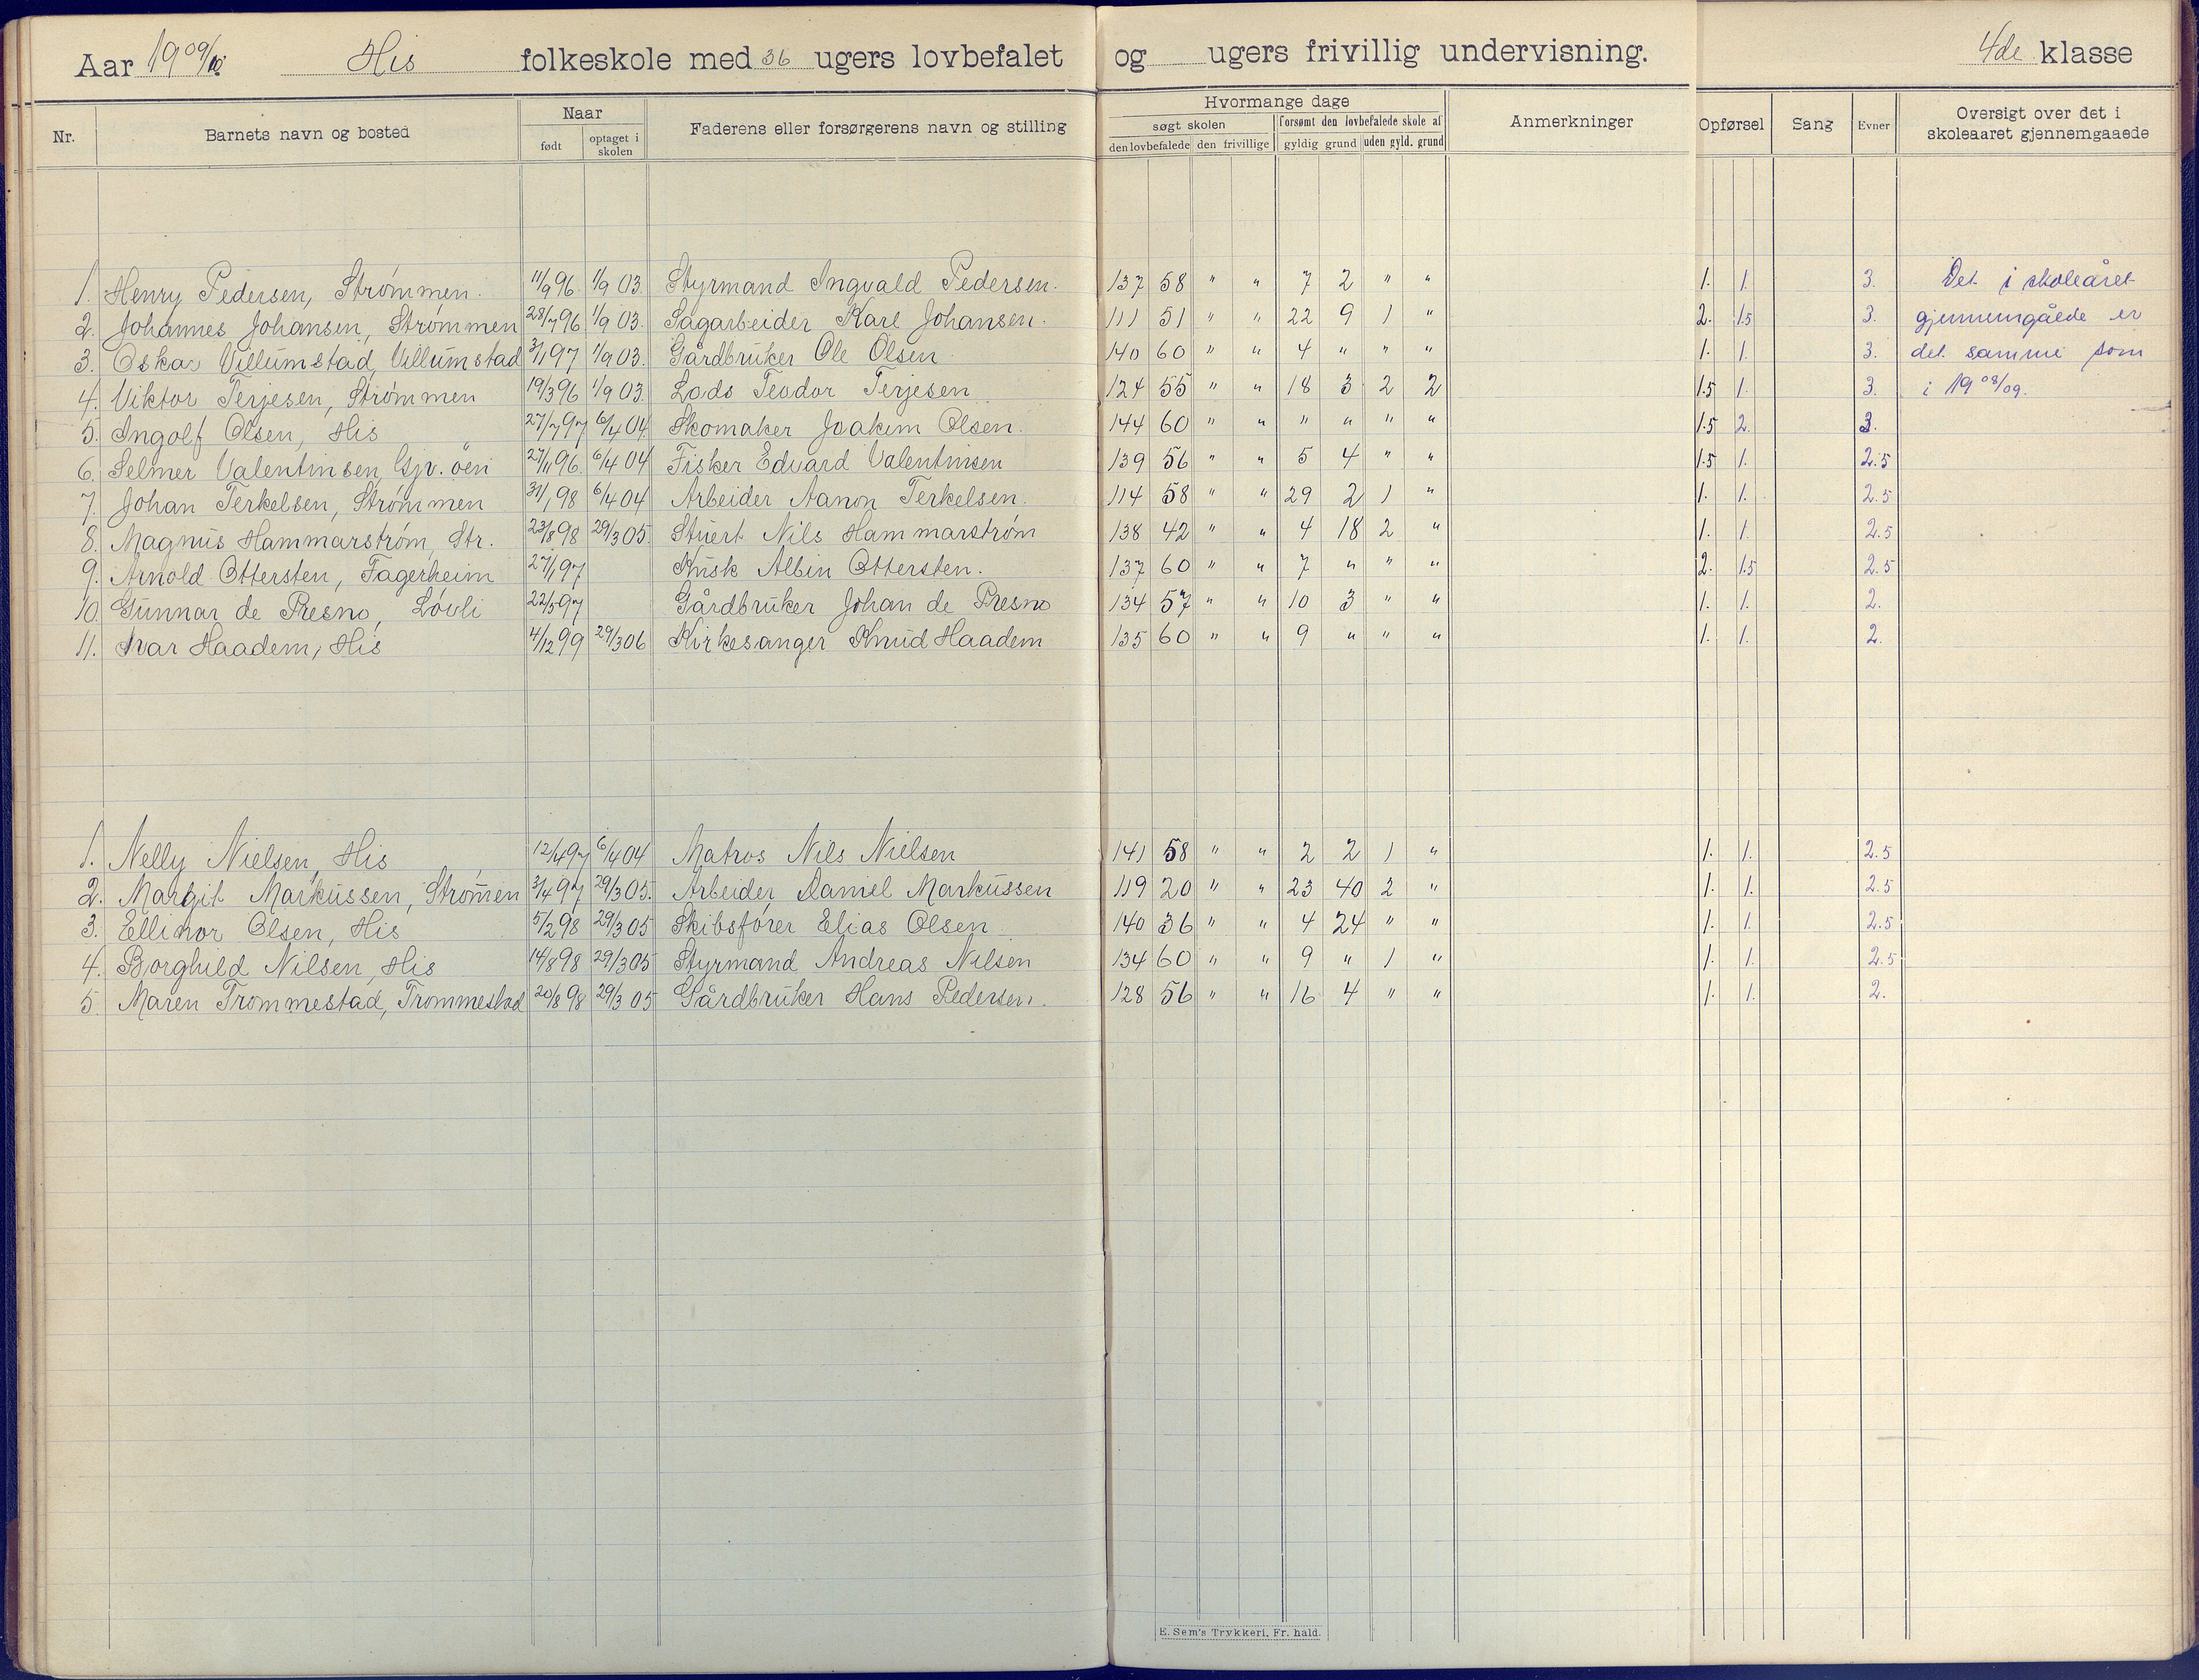 Aar 1909/10 His folkeskole med 36 ugers lovbefalet og ugers frivillig undervisning. 4de klasse
Nr. Barnets navn og bosted Naar født optaget i skolen Faderens eller forsørgerens navn og stilling Hvormange dage søgt skolen den lovbefalede den frivillige forsømt den lovbefalede skole af gyldig grund uden gyld. grund Anmerkninger Opførsel Sang Evner Oversigt over det i skoleaaret gjennemgaaede
1. Henry Pedersen, Strømmen. 11/9 96. 1/9 03. Styrmand Ingvald Pedersen. 137 58 " " 7 2 " " 1. 1. 3. Det i skoleåret
2. Johannes Johansen, Strømmen 28/7 96 1/9 03. Sagarbeider Karl Johansen. 111 51 " " 22 9 1 " 2. 1.5 3. gjennemgåede er
3. Oskar Villumstad, Villumstad 3/1 97 1/9 03. Gårdbruker Ole Olsen 140 60 " " 4 " " " 1. 1. 3. det samme som
4. Viktor Terjesen, Strømmen 19/3 96 1/9 03. Lods Teodor Terjesen 124 55 " " 18 3 2 2 1.5 1. 3. i 1908/09.
5. Ingolf Olsen, His 27/7 97 6/4 04. Skomaker Joakim Olsen. 144 60 " " " " " " 1.5 2. 3.
6. Selmer Valentinsen, Gjv. öen 27/11 96. 6/4 04 Fisker Edvard Valentinsen 139 56 " " 5 4 " " 1.5 1. 2.5
7. Johan Terkelsen, Strømmen 31/1 98 6/4 04 Arbeider Aanon Terkelsen. 114 58 " " 29 2 1 " 1. 1. 2.5
8. Magnus Hammarstrøm, Str. 23/8 98 29/3 05. Stuert Nils Hammarstrøm 138 42 " " 4 18 2 " 1. 1. 2.5
9. Arnold Ottersten, Fagerheim 27/1 97 Kusk Albin Ottersten. 137 60 " " 7 " " " 2. 1.5 2.5
10. Gunnar de Presno, Løvli 22/5 97 Gårdbruker Johan de Presno 134 57 " " 10 3 " " 1. 1. 2.
11. Ivar Haadem, His 4/12 99 29/3 06 Kirkesanger Knud Haadem 135 60 " " 9 " " " 1. 1. 2.
1. Nelly Nielsen, His 12/4 97 6/4 04 Matros Nils Nielsen 141 58 " " 2 2 1 " 1. 1. 2.5
2. Margit Markussen, Strømen 3/4 97 29/3 05. Arbeider Daniel Markussen 119 20 " " 23 40 2 " 1. 1. 2.5
3. Ellinor Olsen, His 5/2 98 29/3 05 Skibsfører Elias Olsen 140 36 " " 4 24 " " 1. 1. 2.5
4. Borghild Nilsen, His 14/8 98 29/3 05 Styrmand Andreas Nilsen 134 60 " " 9 " 1 " 1. 1. 2.5
5. Maren Trommestad, Trommestad 20/8 98 29/3 05 Gårdbruker Hans Pedersen. 128 56 " " 16 4 " " 1. 1. 2.
E. Sem's Trykkeri, Fr. hald.